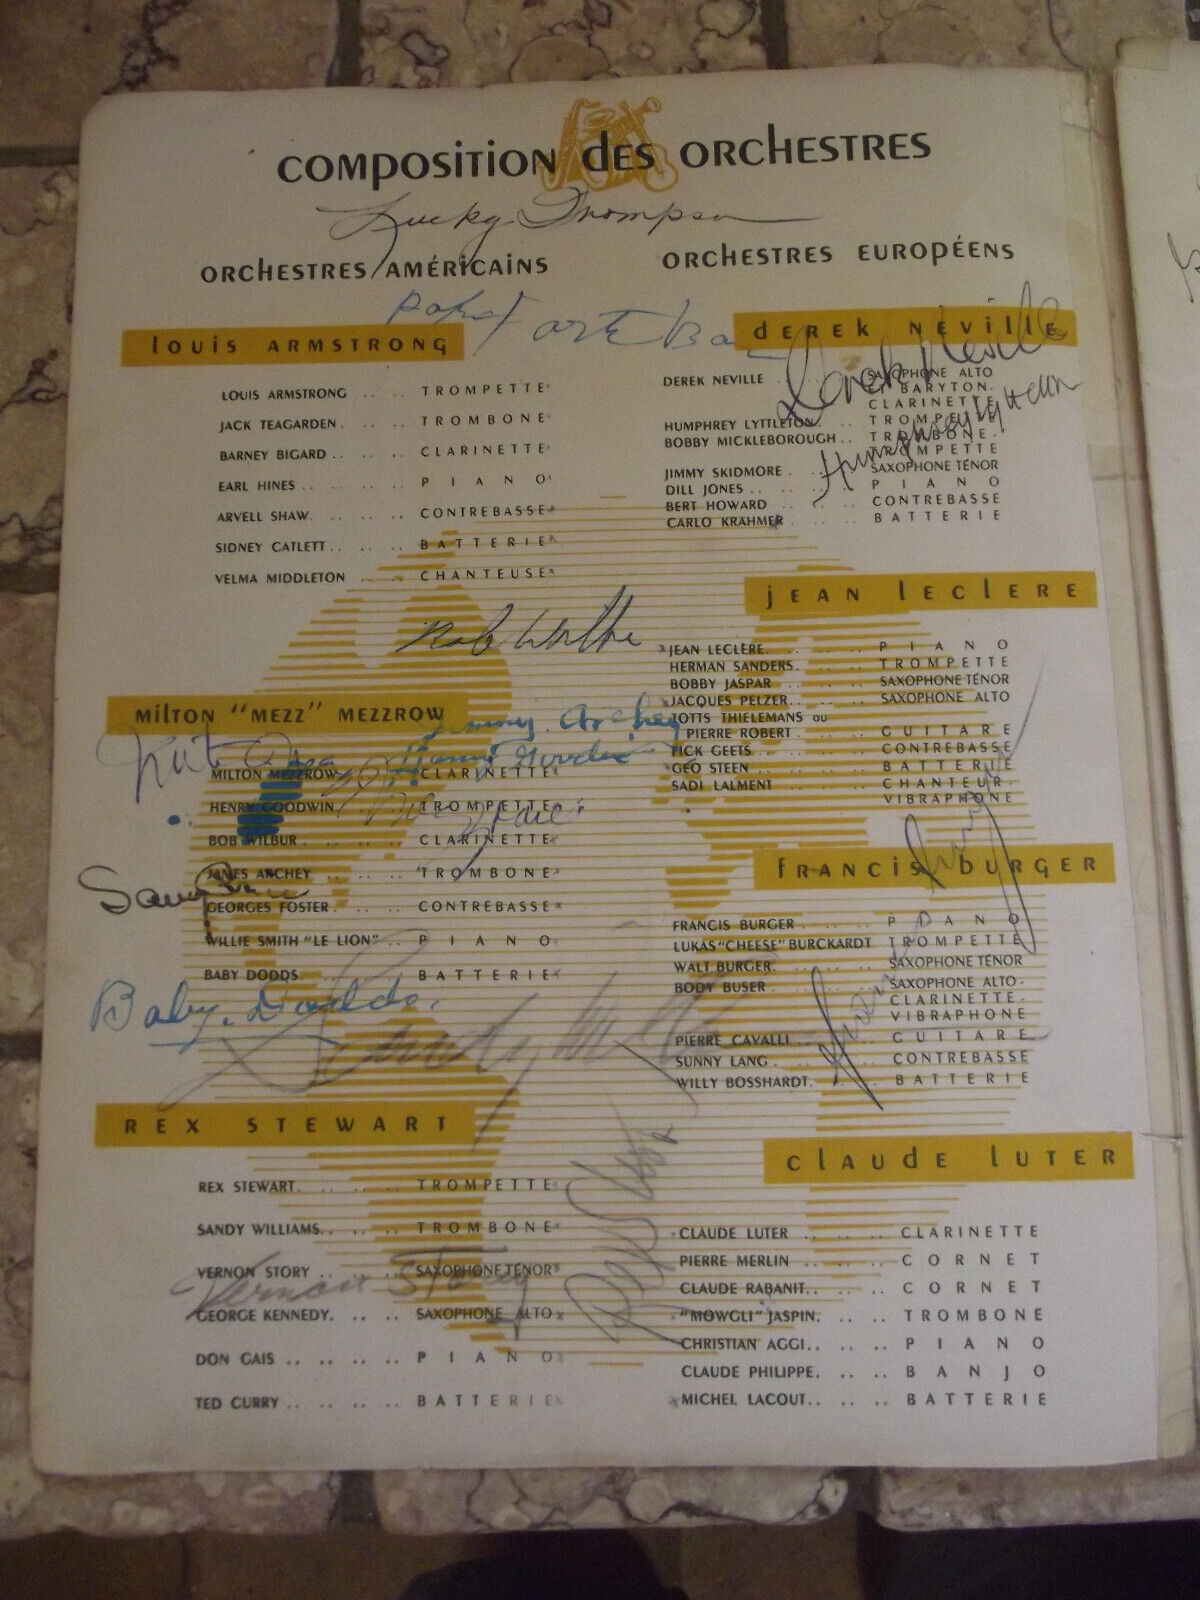 COMPOSITION DES ORCHESTRES
Lucky Thompson
ORCHESTRES AMÉRICAINS
LOUIS ARMSTRONG
LOUIS ARMSTRONG .. .. TROMPETTE
JACK TEAGARDEN. .. .. TROMBONE
BARNEY BIGARD .. .. .. CLARINETTE
EARL HINES .. .. .. .. PIANO
ARVELL SHAW. .. .. .. CONTREBASSE
SIDNEY CATLETT .. .. .. BATTERIE
VELMA MIDDLETON .. .. CHANTEUSE
Bob Wilber
MILTON "MEZZ" MEZZROW
Jimmy Archey
MILTON MEZZROW CLARINETTE
HENRY GOODWIN. TROMPETTE
BOB WILBUR .. .. .. CLARINETTE
JAMES ARCHEY .. .. .. TROMBONE
GEORGES FOSTER. .. .. CONTREBASSE
WILLIE SMITH "LE LION" .. PIANO
BABY DODDS. .. .. .. BATTERIE
Baby. Dodds.
Sandy Williams
REX STEWART
REX STEWART. .. .. .. TROMPETTE
SANDY WILLIAMS. .. .. TROMBONE
VERNON STORY .. .. .. SAXOPHONE TÉNOR
Vernon Story
GEORGE KENNEDY. .. .. SAXOPHONE ALTO
DON GAIS .. .. .. .. PIANO
TED CURRY .. .. .. .. BATTERIE
Rex Stewart
ORCHESTRES EUROPÉENS
DEREK NEVILLE
Derek Neville
DEREK NEVILLE .. SAXOPHONE ALTO
ET BARYTON.
CLARINETTE
HUMPHREY LYTTLETON. .. TROMPETTE
BOBBY MICKLEBOROUGH .. TROMBONE.
TROMPETTE
Humphrey Lyttelton
JIMMY SKIDMORE .. .. SAXOPHONE TÉNOR
DILL JONES .. .. .. .. PIANO
BERT HOWARD .. .. .. CONTREBASSE
CARLO KRAHMER .. .. BATTERIE
JEAN LECLERE
JEAN LECLÈRE. .. .. .. PIANO
HERMAN SANDERS. .. .. TROMPETTE
BOBBY JASPAR .. .. .. SAXOPHONE TÉNOR
JACQUES PELZER. .. .. SAXOPHONE ALTO
TOTTS THIELEMANS OU
PIERRE ROBERT .. .. GUITARE
PICK GEETS .. .. .. .. CONTREBASSE
GEO STEEN .. .. .. .. BATTERIE
SADI LALMENT .. .. .. CHANTEUR.
VIBRAPHONE
FRANCIS BURGER
FRANCIS BURGER .. .. PIANO
LUKAS "CHEESE" BURCKARDT TROMPETTE
WALT BURGER. .. .. .. SAXOPHONE TÉNOR
BODY BUSER .. .. .. SAXOPHONE ALTO.
CLARINETTE.
VIBRAPHONE
PIERRE CAVALLI .. .. GUITARE
SUNNY LANG. .. .. .. CONTREBASSE
WILLY BOSSHARDT. .. .. BATTERIE
CLAUDE LUTER
CLAUDE LUTER .. .. .. CLARINETTE
PIERRE MERLIN .. .. .. CORNET
CLAUDE RABANIT. .. .. CORNET
"MOWGLI" JASPIN. .. .. TROMBONE
CHRISTIAN AGGI.. .. .. PIANO
CLAUDE PHILIPPE. .. .. BANJO
MICHEL LACOUT.. .. .. BATTERIE